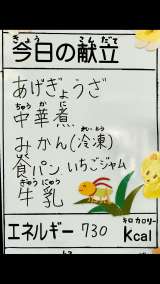 きょう こんだて
今日の献立
あげぎょうざ
ちゅう か に
中華煮
れいとう
みかん(冷凍)
しょく
食パン いちごジャム
ぎゅうにゅう
牛乳
キロカロリー
エネルギー 730 Kcal